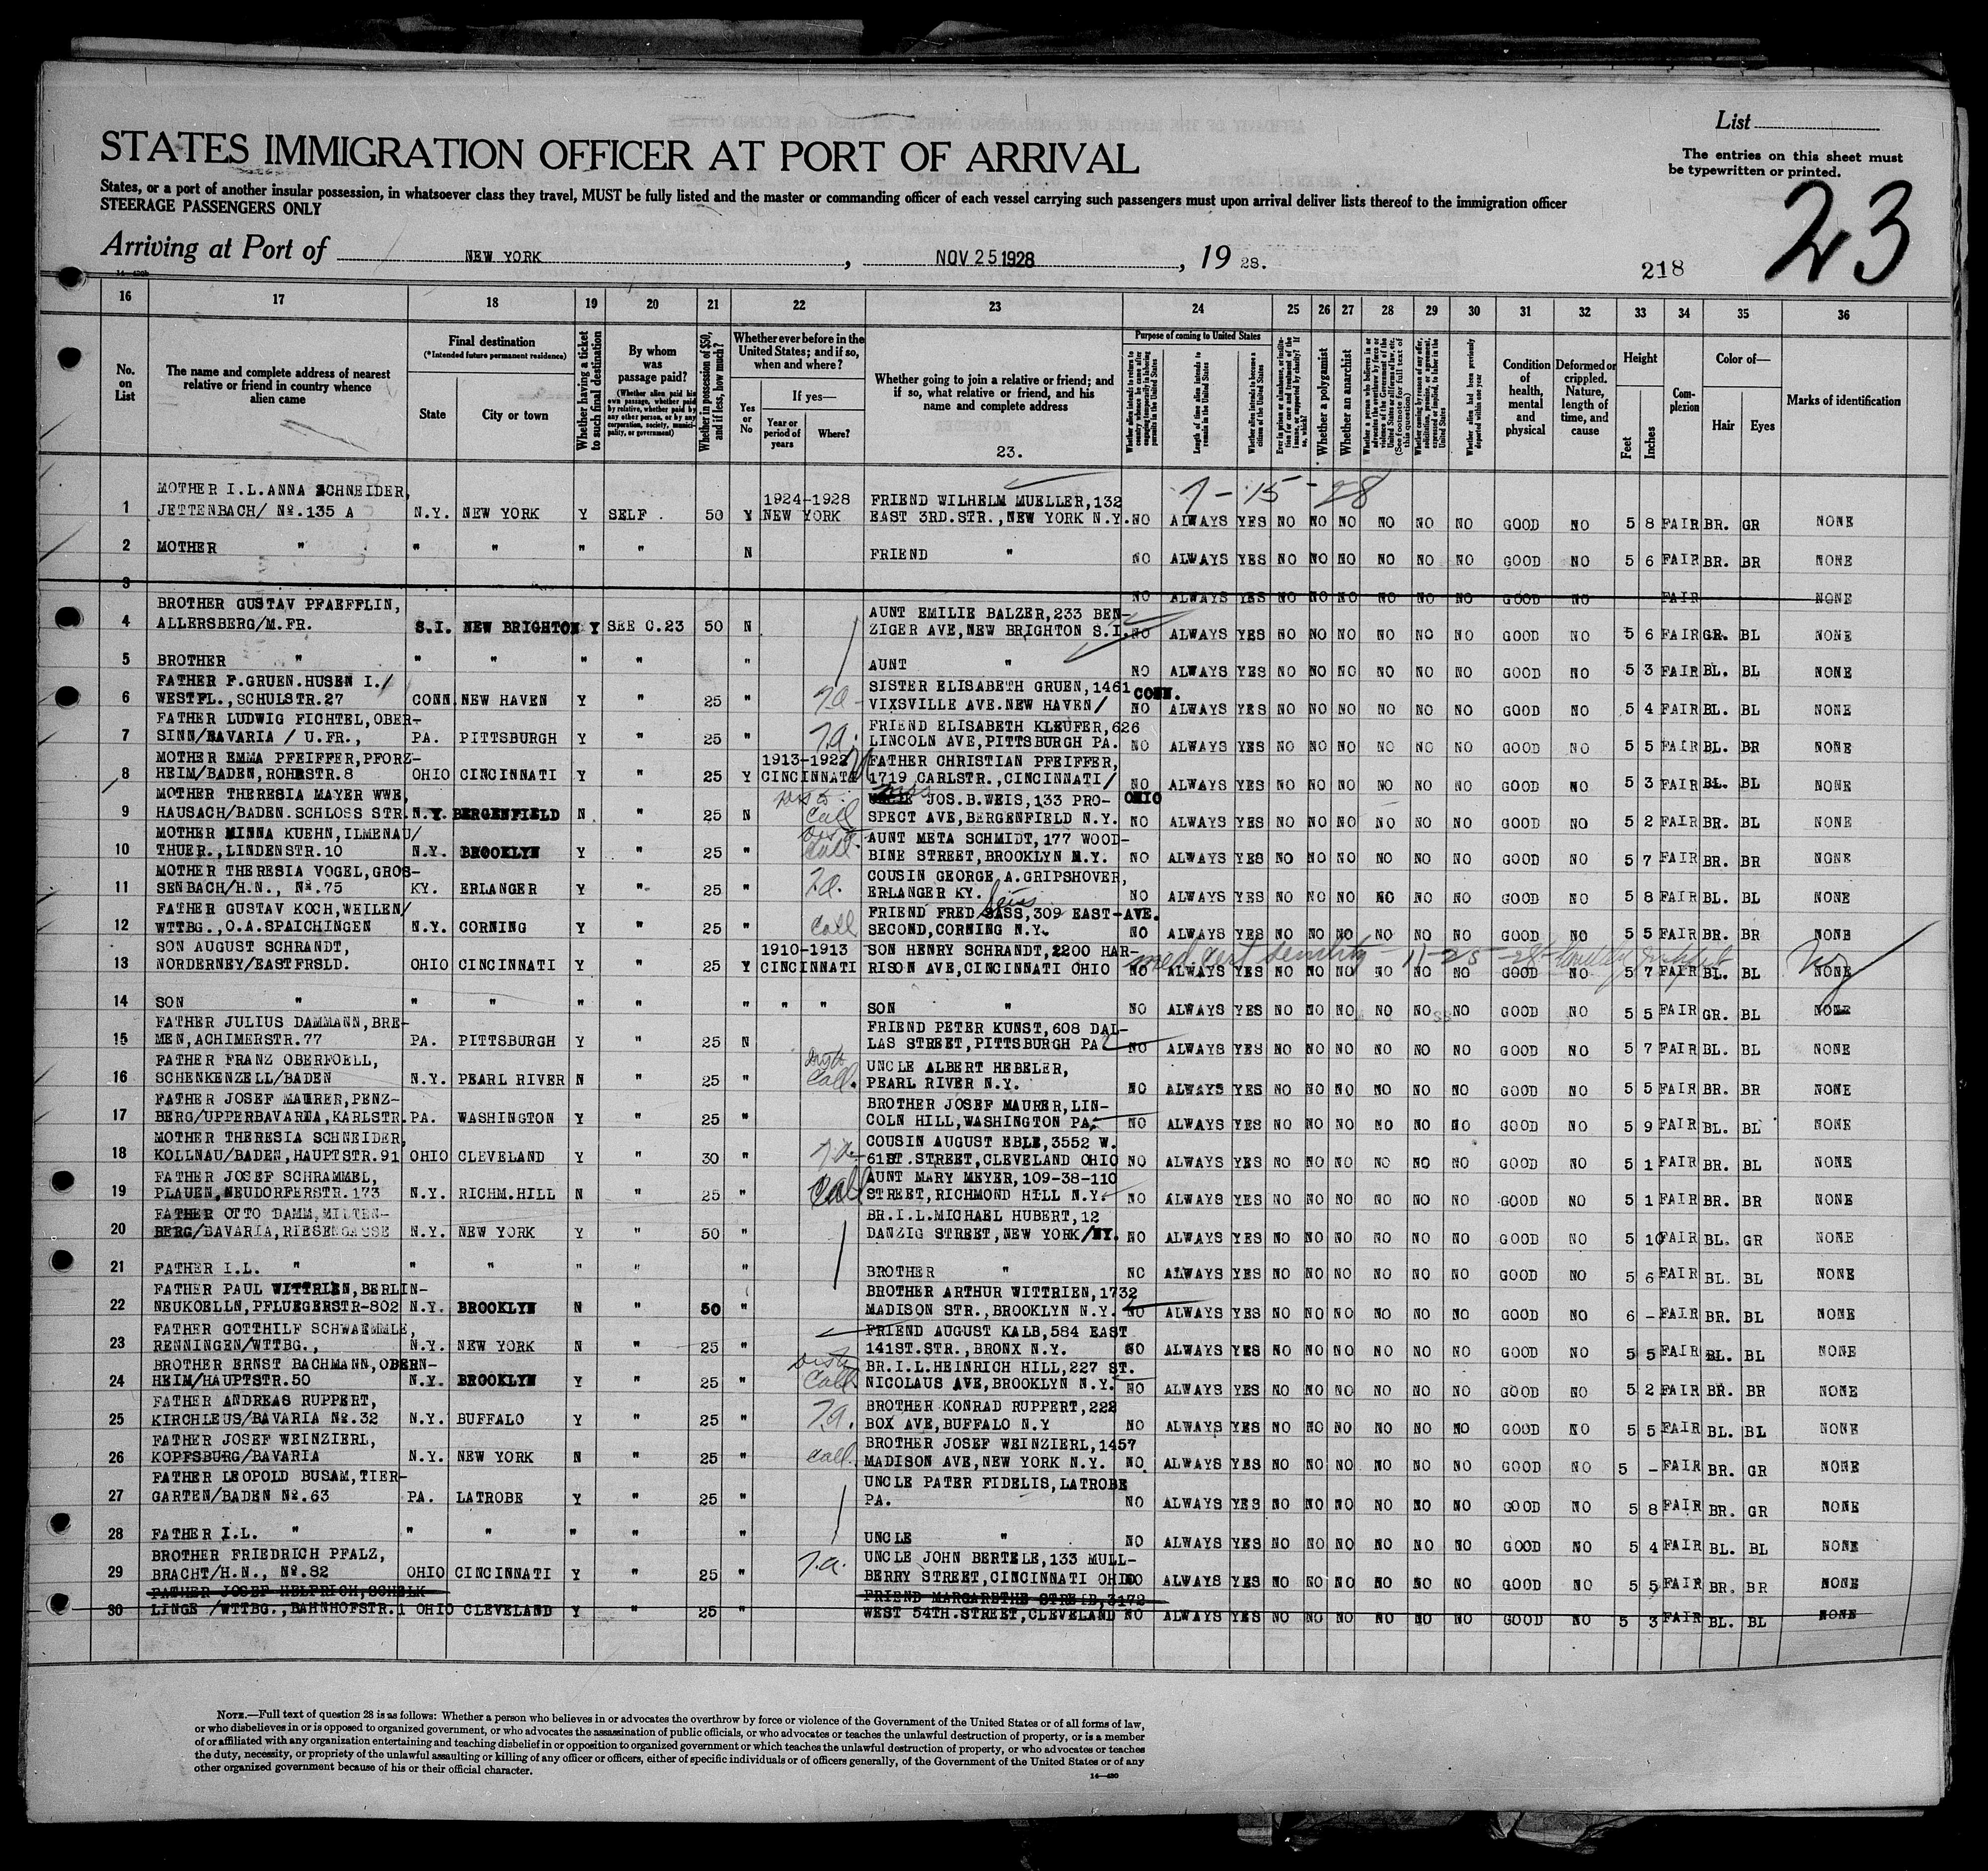 List
The entries on this sheet must
be typewritten or printed.
STATES IMMIGRATION OFFICER AT PORT OF ARRIVAL
States, or a port of another insular possession, in whatsoever class they travel, MUST be fully listed and the master or commanding officer of each vessel carrying such passengers must upon arrival deliver lists thereof to the immigration officer
STEERAGE PASSENGERS ONLY
23
Arriving at Port of NEW YORK, NOV 25 1928, 19 28.
218
16 17 18 19 20 21 22 23 24 25 26 27 28 29 30 31 32 33 34 35 36
No. on List
The name and complete address of nearest relative or friend in country whence alien came
Final destination
(*Intended future permanent residence)
State
City or town
Whether having a ticket to such final destination
By whom was passage paid?
(Whether alien paid his own passage, whether paid by relative, whether paid by any other person, or by any corporation, society, municipality, or government)
Whether in possession of $50, and if less, how much?
Whether ever before in the United States; and if so, when and where?
Yes or No
If yes—
Year or period of years
Where?
Whether going to join a relative or friend; and if so, what relative or friend, and his name and complete address
23.
Purpose of coming to United States
Length of time alien intends to remain in the United States
Whether alien intends to become a citizen of the United States
Whether a polygamist
Whether an anarchist
Condition of health, mental and physical
Deformed or crippled. Nature, length of time, and cause
Height
Feet
Inches
Complexion
Color of—
Hair
Eyes
Marks of identification
7-15-28
MOTHER I.L.ANNA SCHNEIDER, 1924-1928 FRIEND WILHELM MUELLER,132
1 JETTENBACH/ No.135 A N.Y. NEW YORK Y SELF . 50 Y NEW YORK EAST 3RD.STR.,NEW YORK N.Y. NO ALWAYS YES NO NO NO NO NO NO GOOD NO 5 8 FAIR BR. GR NONE
2 MOTHER " " " " " N FRIEND " NO ALWAYS YES NO NO NO NO NO NO GOOD NO 5 6 FAIR BR. BR NONE
3 NO ALWAYS YES NO NO NO NO NO NO GOOD NO FAIR NONE
BROTHER GUSTAV PFAEFFLIN, AUNT EMILIE BALZER,233 BEN-
4 ALLERSBERG/M.FR. S.I. NEW BRIGHTON Y SEE C.23 50 N ZIGER AVE,NEW BRIGHTON S.I. NO ALWAYS YES NO NO NO NO NO NO GOOD NO 5 6 FAIR GR. BL NONE
5 BROTHER " " " " " " AUNT " NO ALWAYS YES NO NO NO NO NO NO GOOD NO 5 3 FAIR BL. BL NONE
FATHER F.GRUEN.HUSEN I./ SISTER ELISABETH GRUEN,1461 CONN.
6 WESTFL.,SCHULSTR.27 CONN. NEW HAVEN Y " 25 " VIXSVILLE AVE.NEW HAVEN/ NO ALWAYS YES NO NO NO NO NO NO GOOD NO 5 4 FAIR BL. BL NONE
FATHER LUDWIG FICHTEL,OBER- FRIEND ELISABETH KLEUFER,626
7 SINN/BAVARIA / U.FR., PA. PITTSBURGH Y " 25 " LINCOLN AVE,PITTSBURGH PA. NO ALWAYS YES NO NO NO NO NO NO GOOD NO 5 5 FAIR BL. BR NONE
MOTHER EMMA PFEIFFER,PFORZ- 1913-1922 FATHER CHRISTIAN PFEIFFER,
8 HEIM/BADEN,ROHRSTR.8 OHIO CINCINNATI Y " 25 Y CINCINNATI 1719 CARLSTR.,CINCINNATI/ NO ALWAYS YES NO NO NO NO NO NO GOOD NO 5 3 FAIR BL. BL NONE
MOTHER THERESIA MAYER WWE, UNCLE JOS.B.WEIS,133 PRO- OHIO
9 HAUSACH/BADEN.SCHLOSS STR. N.Y. BERGENFIELD N " 25 N Call SPECT AVE,BERGENFIELD N.Y. NO ALWAYS YES NO NO NO NO NO NO GOOD NO 5 2 FAIR BR. BL NONE
MOTHER MINNA KUEHN,ILMENAU/ AUNT META SCHMIDT,177 WOOD-
10 THUER.,LINDENSTR.10 N.Y. BROOKLYN Y " 25 " Call BINE STREET,BROOKLYN N.Y. NO ALWAYS YES NO NO NO NO NO NO GOOD NO 5 7 FAIR BR. BR NONE
MOTHER THERESIA VOGEL,GROS- COUSIN GEORGE A.GRIPSHOVER,
11 SENBACH/H.N., No.75 KY. ERLANGER Y " 25 " ERLANGER KY. NO ALWAYS YES NO NO NO NO NO NO GOOD NO 5 8 FAIR BL. BL NONE
FATHER GUSTAV KOCH,WEILEN/ FRIEND FRED SASS,309 EAST-AVE.
12 WTTBG.,O.A.SPAICHINGEN N.Y. CORNING Y " 25 " Call SECOND,CORNING N.Y. NO ALWAYS YES NO NO NO NO NO NO GOOD NO 5 5 FAIR BR. BR NONE
SON AUGUST SCHRANDT, 1910-1913 SON HENRY SCHRANDT,2200 HAR- med cert senility - 11-25-28
13 NORDERNEY/EASTFRSLD. OHIO CINCINNATI Y " 25 Y CINCINNATI RISON AVE,CINCINNATI OHIO NO ALWAYS YES NO NO NO NO NO NO GOOD NO 5 7 FAIR BL. BL NONE
14 SON " " " " " " SON " NO ALWAYS YES NO NO NO NO NO NO GOOD NO 5 5 FAIR GR. BL NONE
FATHER JULIUS DAMMANN,BRE- FRIEND PETER KUNST,608 DAL-
15 MEN,ACHIMERSTR.77 PA. PITTSBURGH Y " 25 N LAS STREET,PITTSBURGH PA. NO ALWAYS YES NO NO NO NO NO NO GOOD NO 5 7 FAIR BL. BL NONE
FATHER FRANZ OBERFOELL, UNCLE ALBERT HEBELER,
16 SCHENKENZELL/BADEN N.Y. PEARL RIVER N " 25 " Call. PEARL RIVER N.Y. NO ALWAYS YES NO NO NO NO NO NO GOOD NO 5 5 FAIR BR. BR NONE
FATHER JOSEF MAURER,PENZ- BROTHER JOSEF MAURER,LIN-
17 BERG/UPPERBAVARIA,KARLSTR. PA. WASHINGTON Y " 25 " COLN HILL,WASHINGTON PA. NO ALWAYS YES NO NO NO NO NO NO GOOD NO 5 9 FAIR BL. BL NONE
MOTHER THERESIA SCHNEIDER, COUSIN AUGUST EBLE,3552 W.
18 KOLLNAU/BADEN,HAUPTSTR.91 OHIO CLEVELAND Y " 30 " 61ST.STREET,CLEVELAND OHIO NO ALWAYS YES NO NO NO NO NO NO GOOD NO 5 1 FAIR BR. BL NONE
FATHER JOSEF SCHRAMMEL, AUNT MARY MEYER,109-38-110
19 PLAUEN,NEUDORFERSTR.173 N.Y. RICHM.HILL N " 25 " Call STREET,RICHMOND HILL N.Y. NO ALWAYS YES NO NO NO NO NO NO GOOD NO 5 1 FAIR BR. BR NONE
FATHER OTTO DAMM,MILTEN- BR.I.L.MICHAEL HUBERT,12
20 BERG/BAVARIA,RIESENGASSE N.Y. NEW YORK Y " 50 " DANZIG STREET,NEW YORK/NY. NO ALWAYS YES NO NO NO NO NO NO GOOD NO 5 10 FAIR BL. GR NONE
21 FATHER I.L. " " " " " " BROTHER " NO ALWAYS YES NO NO NO NO NO NO GOOD NO 5 6 FAIR BL. BL NONE
FATHER PAUL WITTRIEN,BERLIN- BROTHER ARTHUR WITTRIEN,1732
22 NEUKOELLN,PFLUEGERSTR-802 N.Y. BROOKLYN N " 50 " MADISON STR.,BROOKLYN N.Y. NO ALWAYS YES NO NO NO NO NO NO GOOD NO 6 - FAIR BR. BL NONE
FATHER GOTTHILF SCHWAEMMLE, FRIEND AUGUST KALB,584 EAST
23 RENNINGEN/WTTBG., N.Y. NEW YORK N " 25 " 141ST.STR.,BRONX N.Y. NO ALWAYS YES NO NO NO NO NO NO GOOD NO 5 5 FAIR BL. BL NONE
BROTHER ERNST BACHMANN,OBERN- BR.I.L.HEINRICH HILL,227 ST.
24 HEIM/HAUPTSTR.50 N.Y. BROOKLYN Y " 25 " Call NICOLAUS AVE,BROOKLYN N.Y. NO ALWAYS YES NO NO NO NO NO NO GOOD NO 5 2 FAIR BR. BR NONE
FATHER ANDREAS RUPPERT, BROTHER KONRAD RUPPERT,222
25 KIRCHLEUS/BAVARIA No.32 N.Y. BUFFALO Y " 25 " BOX AVE,BUFFALO N.Y NO ALWAYS YES NO NO NO NO NO NO GOOD NO 5 5 FAIR BL. BL NONE
FATHER JOSEF WEINZIERL, BROTHER JOSEF WEINZIERL,1457
26 KOPFSBURG/BAVARIA N.Y. NEW YORK N " 25 " Call MADISON AVE,NEW YORK N.Y. NO ALWAYS YES NO NO NO NO NO NO GOOD NO 5 - FAIR BR. GR NONE
FATHER LEOPOLD BUSAM,TIER- UNCLE PATER FIDELIS,LATROBE
27 GARTEN/BADEN No.63 PA. LATROBE Y " 25 " PA. NO ALWAYS YES NO NO NO NO NO NO GOOD NO 5 8 FAIR BR. GR NONE
28 FATHER I.L. " " " " " " UNCLE " NO ALWAYS YES NO NO NO NO NO NO GOOD NO 5 4 FAIR BL. BL NONE
BROTHER FRIEDRICH PFALZ, UNCLE JOHN BERTELE,133 MULL-
29 BRACHT/H.N., No.82 OHIO CINCINNATI Y " 25 " BERRY STREET,CINCINNATI OHIO NO ALWAYS YES NO NO NO NO NO NO GOOD NO 5 5 FAIR BR. BR NONE
FATHER JOSEF HELPRICH,SCHELK- FRIEND MARGARETHE STREIB,3172
30 LINGE /WTTBG.,BAHNHOFSTR.1 OHIO CLEVELAND Y " 25 " WEST 54TH.STREET,CLEVELAND NO ALWAYS YES NO NO NO NO NO NO GOOD NO 5 3 FAIR BL. BL NONE
NOTE.—Full text of question 28 is as follows: Whether a person who believes in or advocates the overthrow by force or violence of the Government of the United States or of all forms of law,
or who disbelieves in or is opposed to organized government, or who advocates the assassination of public officials, or who advocates or teaches the unlawful destruction of property, or is a member
of or affiliated with any organization entertaining and teaching disbelief in or opposition to organized government or which teaches the unlawful destruction of property, or who advocates or teaches
the duty, necessity, or propriety of the unlawful assaulting or killing of any officer or officers, either of specific individuals or of officers generally, of the Government of the United States or of any
other organized government because of his or their official character.
14—430